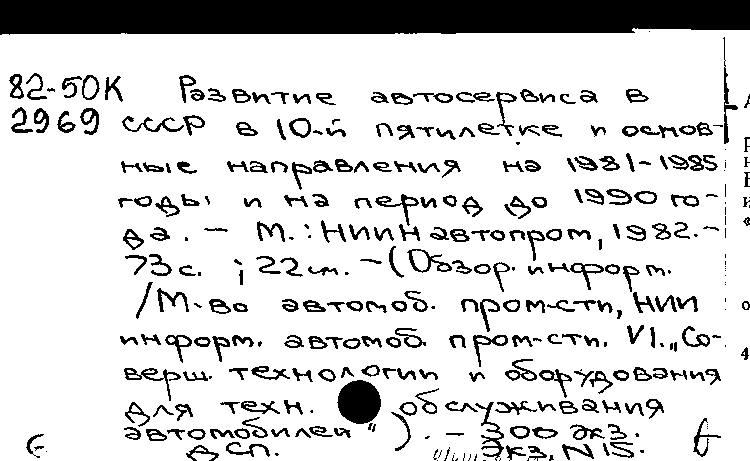 82-50К Развитие автосервиса в
2969 СССР в 10-й пятилетке и основ-
ные направления на 1981-1985
годы и на период до 1990 го-
да. - М.: НИИНавтопром, 1982.-
73 с. ; 22 см. - (Обзор. информ.
/М-во автомоб. пром-сти, НИИ
информ. автомоб. пром-сти. VI. „Со-
верш. технологии и оборудования
для техн. обслуживания
автомобилей"). - 300 экз.
ДСП. Экз. N 15.